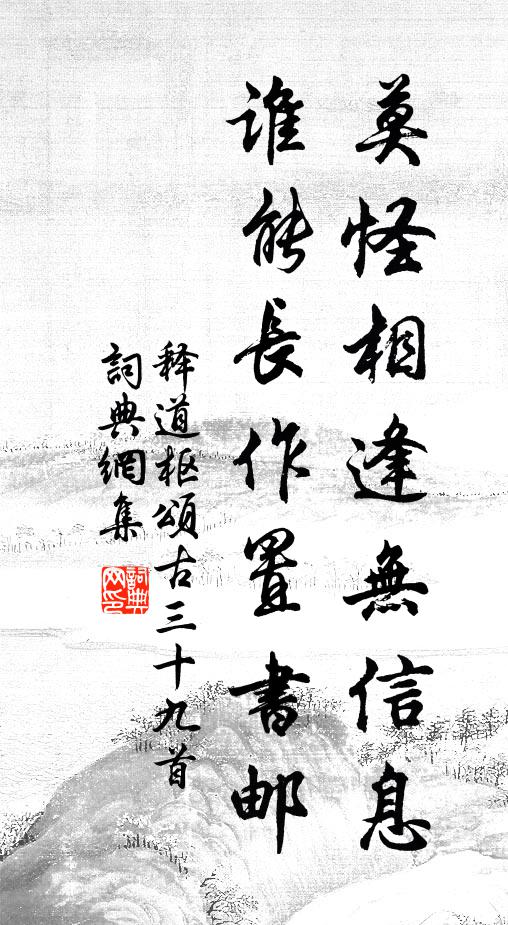 莫怪相逢無信息
谁能長作置書邮
释道枢頌古三十九首
詞典網集
詞典网印